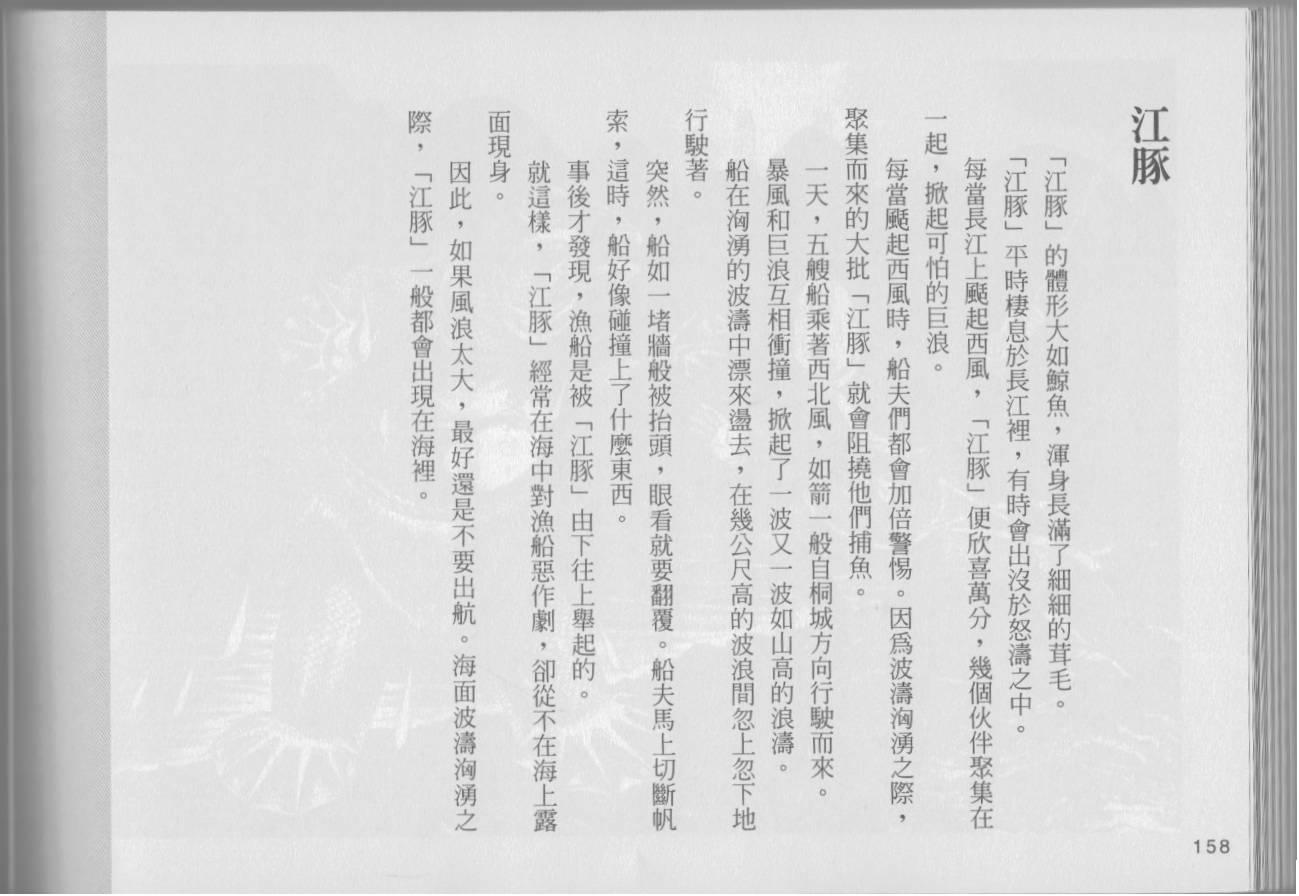 江豚
「江豚」的體形大如鯨魚，渾身長滿了細細的茸毛。
「江豚」平時棲息於長江裡，有時會出沒於怒濤之中。
每當長江上颳起西風，「江豚」便欣喜萬分，幾個伙伴聚集在
一起，掀起可怕的巨浪。
每當颳起西風時，船夫們都會加倍警惕。因爲波濤洶湧之際，
聚集而來的大批「江豚」就會阻撓他們捕魚。
一天，五艘船乘著西北風，如箭一般自桐城方向行駛而來。
暴風和巨浪互相衝撞，掀起了一波又一波如山高的浪濤。
船在洶湧的波濤中漂來盪去，在幾公尺高的波浪間忽上忽下地
行駛著。
突然，船如一堵牆般被抬頭，眼看就要翻覆。船夫馬上切斷帆
索，這時，船好像碰撞上了什麼東西。
事後才發現，漁船是被「江豚」由下往上舉起的。
就這樣，「江豚」經常在海中對漁船惡作劇，卻從不在海上露
面現身。
因此，如果風浪太大，最好還是不要出航。海面波濤洶湧之
際，「江豚」一般都會出現在海裡。
158